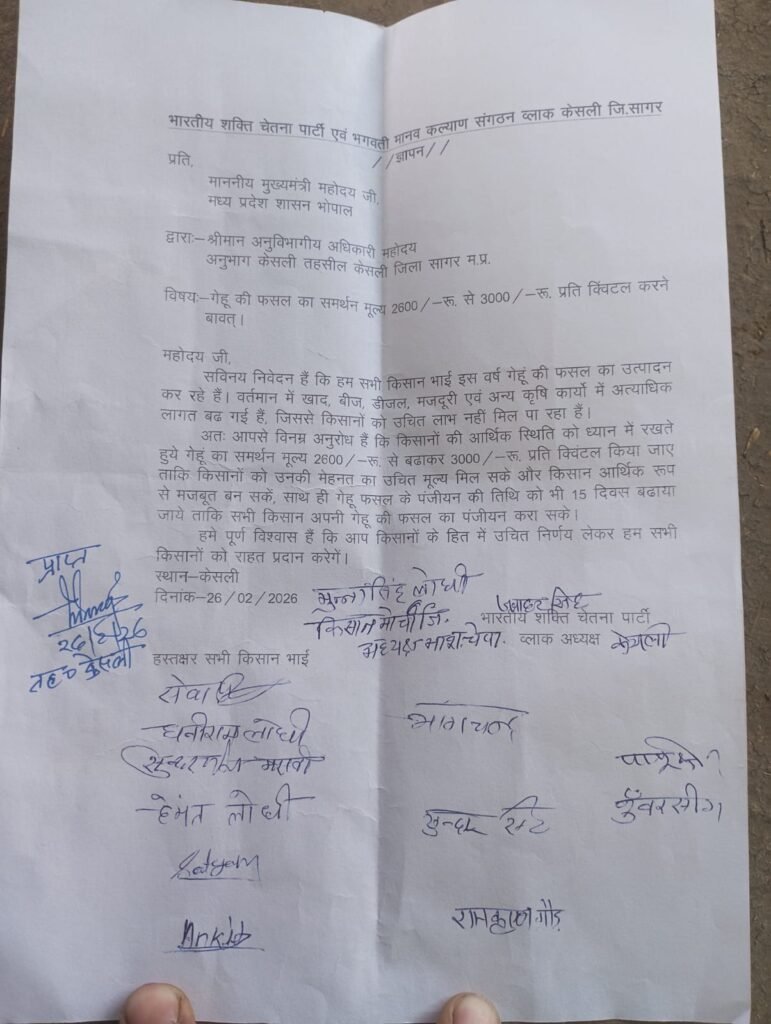 भारतीय शक्ति चेतना पार्टी एवं भगवती मानव कल्याण संगठन व्लाक केसली जि.सागर
//ज्ञापन//
प्रति,
माननीय मुख्यमंत्री महोदय जी,
मध्य प्रदेश शासन भोपाल
द्वाराः–श्रीमान अनुविभागीय अधिकारी महोदय
अनुभाग केसली तहसील केसली जिला सागर म.प्र.
विषयः–गेहू की फसल का समर्थन मूल्य 2600/–रू. से 3000/–रू. प्रति क्विंटल करने
बावत्।
महोदय जी,
सविनय निवेदन हैं कि हम सभी किसान भाई इस वर्ष गेहूं की फसल का उत्पादन
कर रहे हैं। वर्तमान में खाद, बीज, डीजल, मजदूरी एवं अन्य कृषि कार्यो में अत्याधिक
लागत बढ गई हैं, जिससे किसानों को उचित लाभ नहीं मिल पा रहा हैं।
अतः आपसे विनम्र अनुरोध हैं कि किसानों की आर्थिक स्थिति को ध्यान में रखते
हुये गेहूं का समर्थन मूल्य 2600/–रू. से बढाकर 3000/–रू. प्रति क्विंटल किया जाए
ताकि किसानों को उनकी मेहनत का उचित मूल्य मिल सके और किसान आर्थिक रूप
से मजबूत बन सकें, साथ ही गेहू फसल के पंजीयन की तिथि को भी 15 दिवस बढाया
जाये ताकि सभी किसान अपनी गेहू की फसल का पंजीयन करा सके।
हमे पूर्ण विश्वास हैं कि आप किसानों के हित में उचित निर्णय लेकर हम सभी
किसानों को राहत प्रदान करेगें।
प्राप्त
26/2/26
तह० केसली
स्थान–केसली
दिनांक–26/02/2026
मुन्नासिंह लोधी
किसान मोर्चा जि.
अध्यक्ष भाशचेपा.
भारतीय शक्ति चेतना पार्टी
व्लाक अध्यक्ष केसली
हस्तक्षर सभी किसान भाई
सेवा
धनीराम लोधी
भागचन्द
हेमंत लोधी
सुन्दर
कुँवरसींग
Satyam
Ankit
रामकृष्ण गौड़